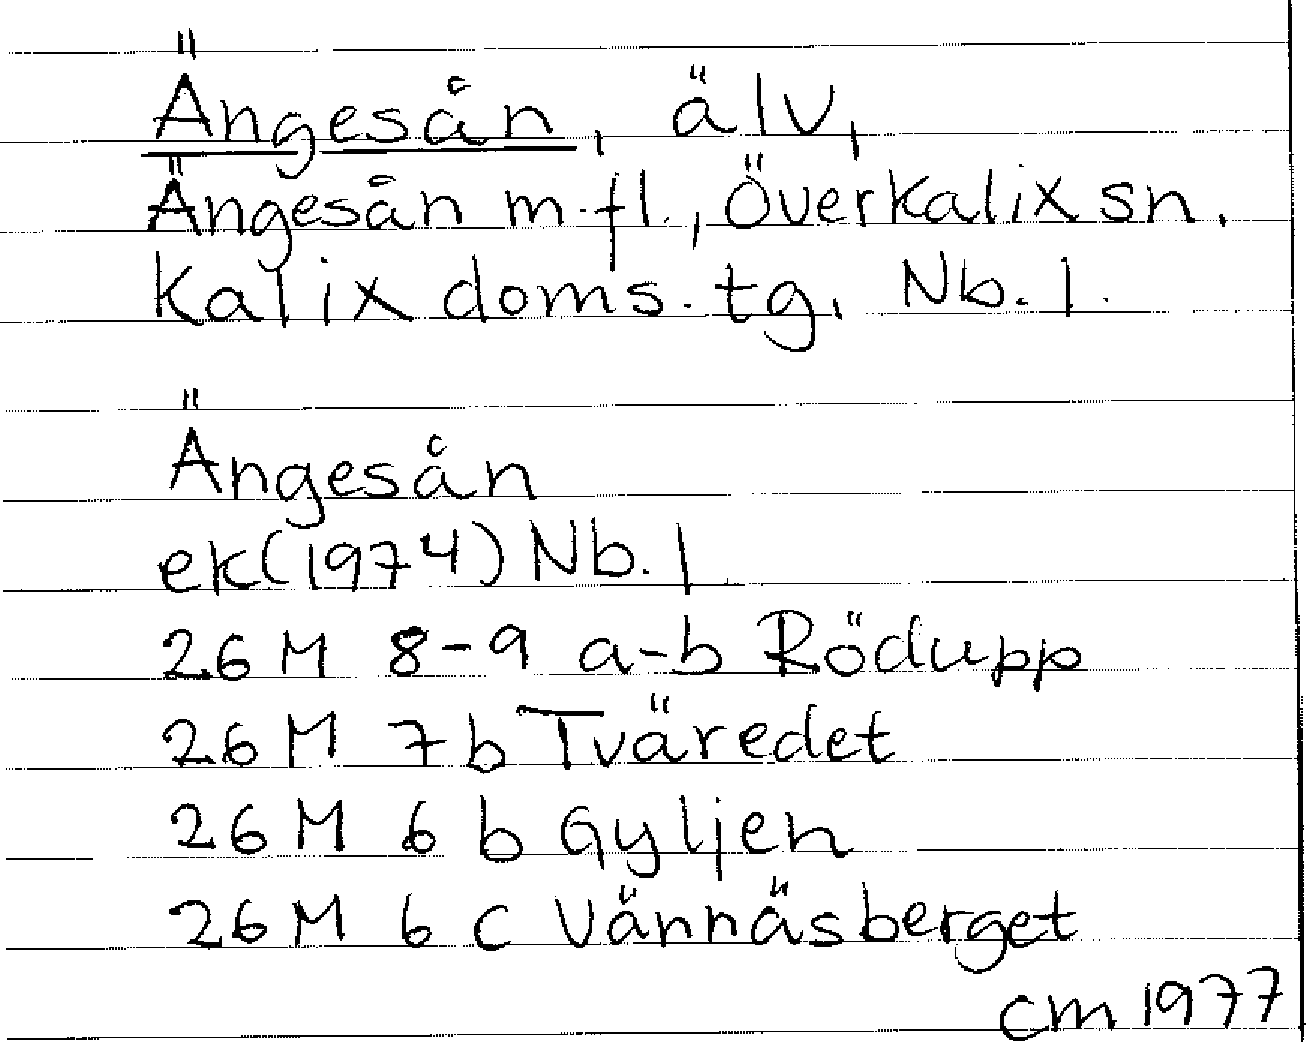 Ängesån, älv,
Ängesån m.fl., Överkalix sn.
Kalix doms. tg. Nb. l.
Ängesån
ek(1974) Nb. l
26 M 8-9 a-b Rödupp
26 M 7b Tväredet
26 M 6 b Gyljen
26 M 6 c Vännäsberget
cm 1977